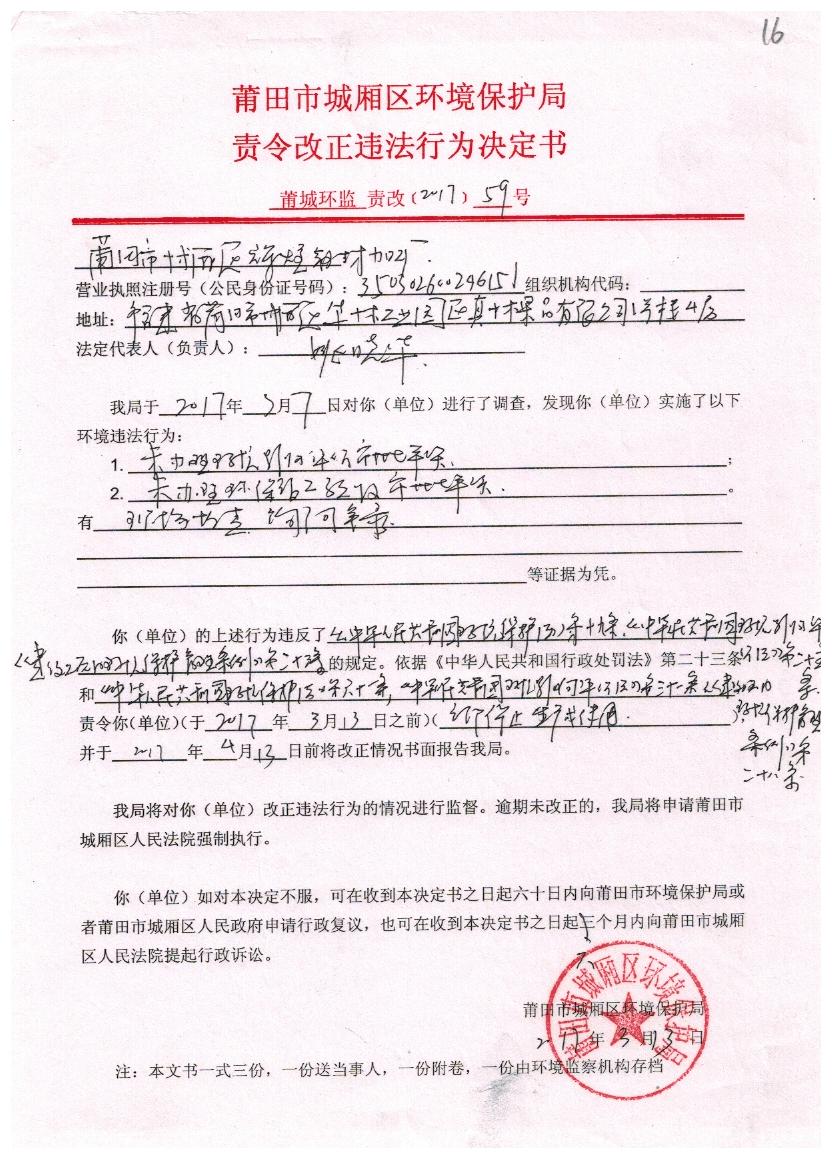 16
莆田市城厢区环境保护局
责令改正违法行为决定书
莆城环监 责改（2017）59号
莆田市城厢区 加工厂
营业执照注册号（公民身份证号码）：350302600296151 组织机构代码：
地址：福建省莆田市城厢区华林工业园区 有限公司1号楼4层
法定代表人（负责人）：
我局于2017年3月7日对你（单位）进行了调查，发现你（单位）实施了以下
环境违法行为：
1. 未办理环境影响评价审批手续 ；
2. 未办理环保竣工验收审批手续 。
有 现场检查、询问笔录
等证据为凭。
你（单位）的上述行为违反了《中华人民共和国环境保护法》第十九条、《中华人民共和国环境影响评
价法》第二十五条
《建设项目环境保护管理条例》第二十条的规定。依据《中华人民共和国行政处罚法》第二十三条
和《中华人民共和国环境保护法》第六十一条、《中华人民共和国环境影响评价法》第三十一条《建设项目
环境保护管理条例》第二十八条
责令你(单位)(于 2017 年 3月13日之前)(立即停止生产或使用)，
并于 2017 年 4月13日前将改正情况书面报告我局。
我局将对你（单位）改正违法行为的情况进行监督。逾期未改正的，我局将申请莆田市
城厢区人民法院强制执行。
你（单位）如对本决定不服，可在收到本决定书之日起六十日内向莆田市环境保护局或
者莆田市城厢区人民政府申请行政复议，也可在收到本决定书之日起三个月内向莆田市城厢
六
区人民法院提起行政诉讼。
莆田市城厢区环境保护局
莆田市城厢区环境保护局
2017年3月13日
注：本文书一式三份，一份送当事人，一份附卷，一份由环境监察机构存档